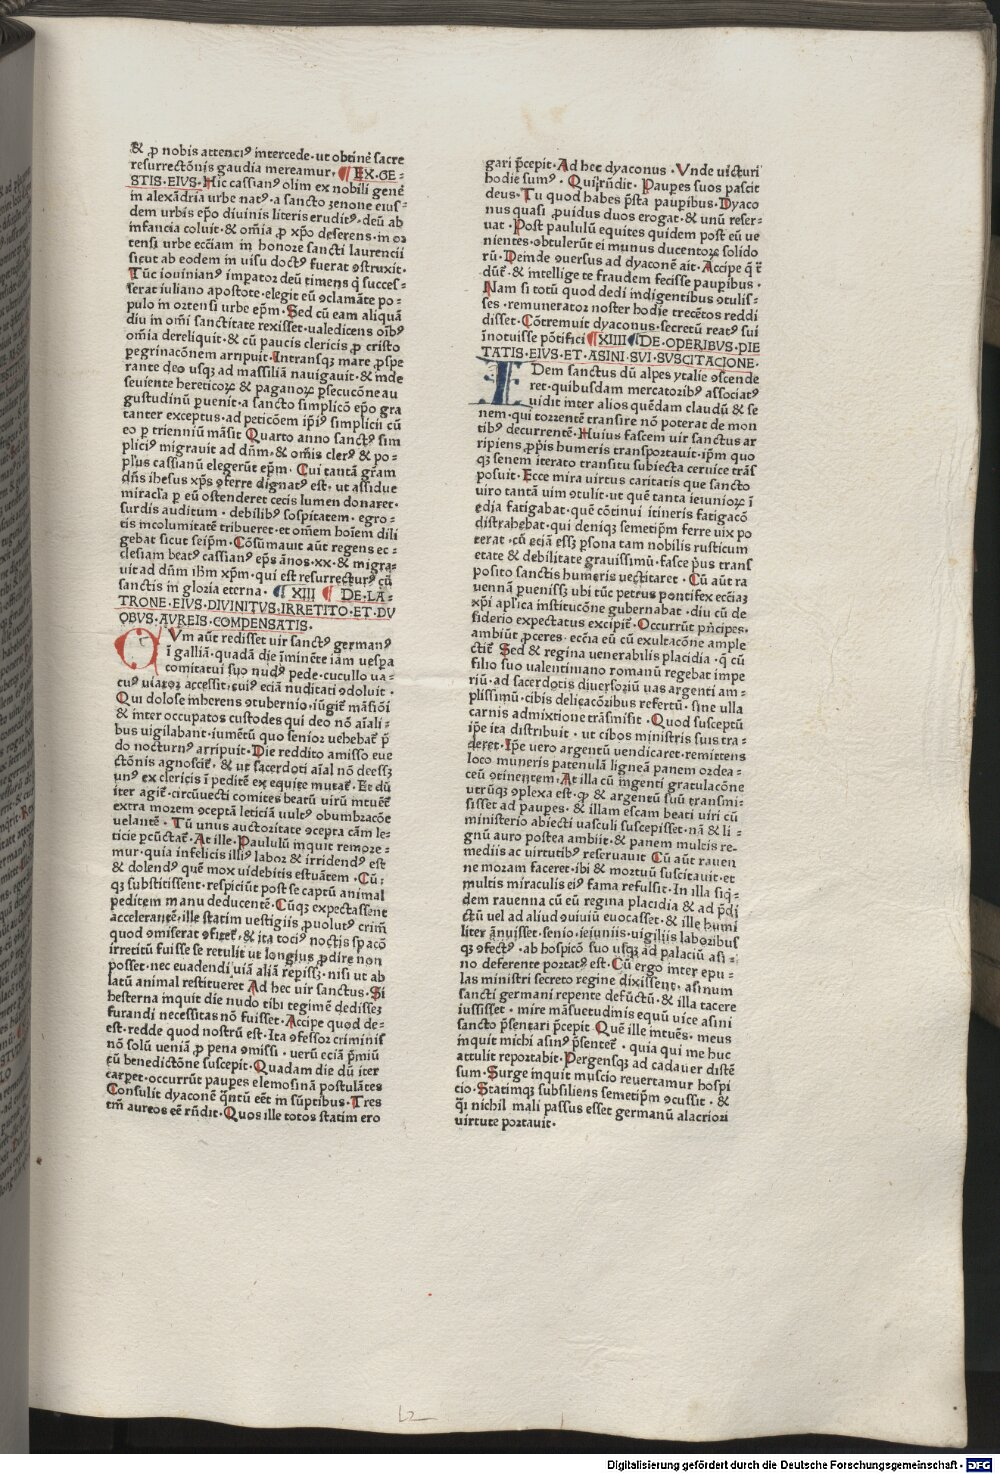 & ꝓ nobis attentiꝰ intercede · ut obtinē sacre
resurrectōnis gaudia mereamur · ¶ EX · GE-
STIS · EIVS · Hic cassianꝰ olim ex nobili genē
in alexādria urbe natꝰ · a sancto zenone eius-
dem urbis ep̄o diuinis literis eruditꝰ · deū ab
infancia coluit · & om̄ia ꝓ xp̄o deserens · in or
tensi urbe ecc̄iam in honore sancti laurencii
sicut ab eodem in uisu doctꝰ fuerat ꝯstruxit ·
Tūc iouinianꝰ imꝑator deū timens q̄ succes-
serat iuliano apostote · elegit eū ꝯclamāte po-
pulo in ortensi urbe ep̄m · Sed cū eam aliquā
diu in om̄i sanctitate rexisset · ualedicens oībꝰ
om̄ia dereliquit · & cū paucis clericis ꝓ cristo
ꝑegrinacōnem arripuit · Intransqꝫ mare ꝓspe
rante deo usqꝫ ad massiliā nauigauit · & inde
seuiente hereticoꝝ & paganoꝝ ꝑsecucōne au
gustudinū ꝑuenit · a sancto simplicō ep̄o gra
tanter exceptus · ad peticōem ip̄iꝰ simplicii cū
eo ꝑ trienniū māsit Quarto anno sanctꝰ sim
pliciꝰ migrauit ad dn̄m · & om̄is clerꝰ & po-
pl̄us cassianū elegerūt ep̄m · Cui tantā gr̄am
dn̄s ihesus xp̄s ꝯferre dignatꝰ est · ut assidue
miracl̄a ꝑ eū ostenderet cecis lumen donaret ·
surdis auditum · debilibꝰ sospitatem · egro-
tis incolumitatē tribueret · et om̄em hoīem dili
gebat sicut seip̄m · Cōsūmauit aūt regens ec-
clesiam beatꝰ cassianꝰ ep̄s ānos · xx · & migra-
uit ad dn̄m ih̄m xp̄m · qui est resurrecturꝰ cū
sanctis in gloria eterna · ¶ XIII ¶ DE · LA-
TRONE · EIVS · DIVINITVS · IRRETITO · ET · DV
OBVS · AVREIS · COMPENSATIS ·
CVm aūt redisset uir sanctꝰ germanꝰ
ī galliā · quadā die īminēte iam uesꝑa
comitatui suo nudꝰ pede · cucullo ua-
cuꝰ uiator accessit · cuiꝰ eciā nuditati ꝯdoluit ·
Qui dolose inherens ꝯtubernio · iūgit᷑ māsiōi
& inter occupatos custodes qui deo nō aīali-
bus uigilabant · iumētū quo senior uehebat᷑ p̄
do nocturnꝰ arripuit · Die reddito amisso eue
ctōnis agnoscit᷑ · & ut sacerdoti aīal nō deessꝫ
unꝰ ex clericis ī peditē ex equite mutat᷑ · Et dū
iter agit᷑ · circūuecti comites beatū uirū intuēt᷑
extra morem ꝯceptā leticiā uultꝰ obumbracōe
uelantē · Tū unus auctoritate ꝯcepta cām le-
ticie ꝑcūctat᷑ · At ille · Paululū inquit remore-
mur · quia infelicis illiꝰ labor & irridendꝰ est
& dolendꝰ quē mox uidebitis estuātem · Cū;
qꝫ substitissent · respiciūt post se captū animal
peditem manu deducentē · Cūqꝫ expectassent
accelerantē · ille statim uestigiis ꝓuolutꝰ crim̄
quod ꝯmiserat ꝯfitet᷑ · & ita tociꝰ noctis sp̄acō
irretitū fuisse se retulit ut longius ꝓdire non
posset · nec euadendi uiā aliā reꝑissꝫ · nisi ut ab
latū animal restitueret Ad hec uir sanctus · Si
hesterna inquit die nudo tibi tegimē dedissēꝫ
furandi necessitas nō fuisset · Accipe quod de-
est · redde quod nostrū est · Ita ꝯfessor criminis
nō solū ueniā ꝓ pena ꝯmissi · uerū eciā p̄miū
cū benedictōne suscepit · Quadam die dū iter
carꝑet · occurrūt pauꝑes elemosinā postulātes
Consulit dyaconē q̄ntū eēt in sūptibus · Tres
tm̄ aureos eē rn̄dit · Quos ille totos statim ero
gari p̄cepit · Ad hec dyaconus · Vnde uicturi
hodie sumꝰ · Qui rn̄dit · Pauꝑes suos pascit
deus · Tu quod habes p̄sta pauꝑibus · Dyaco
nus quasi ꝓuidus duos erogat · & unū reser-
uat · Post paululū equites quidem post eū ue
nientes · obtulerūt ei munus ducentoꝝ solido
rū · Deinde ꝯuersus ad dyaconē ait · Accipe q̄ t̄
dūt᷑ · & intellige te fraudem fecisse pauꝑibus ·
Nam si totū quod dedi indigentibus ꝯtulis-
ses · remunerator noster hodie trecētos reddi
disset · Cōtremuit dyaconus · secretū reatꝰ sui
īnotuisse pōtifici ¶ XIIII ¶ DE · OPERIBVS · PIE
TATIS · EIVS · ET · ASINI · SVI · SVSCITACIONE ·
IDem sanctus dū alpes ytalie ꝯscende
ret · quibusdam mercatoribꝰ associatꝰ
uidit inter alios quēdam claudū & se
nem · qui torrentē transire nō poterat de mon
tibꝰ decurrentē · Huius fascem uir sanctus ar
ripiens ꝓp̄is humeris transportauit · ip̄m quo
qꝫ senem iterato transitu subiecta ceruice trās
posuit · Ecce mira uirtus caritatis que sancto
uiro tantā uim ꝯtulit · ut quē tanta ieiunioꝝ ī
edia fatigabat · quē cōtinui itineris fatigacō
distrahebat · qui deniqꝫ semetip̄m ferre uix po
terat · cū eciā essꝫ ꝑsona tam nobilis rusticum
etate & debilitate grauissimū · fasce p̄us trans
posito sanctis humeris uectitaret · Cū aūt ra
uennā ꝑuenissꝫ ubi tūc petrus pontifex ecc̄iaꝫ
xp̄i apl̄ica institucōne gubernabat · diu cū de
siderio expectatus excipit᷑ · Occurrūt pn̄cipes ·
ambiūt ꝓceres · ecc̄ia eū cū exultacōne ample
ctit᷑ Sed & regina uenerabilis placidia · q̄ cū
filio suo ualentiniano romanū regebat impe
riū · ad sacerdotis diuersoriū uas argenti am-
plissimū · cibis delicacōribus refertū · sine ulla
carnis admixtione trāsmisit · Quod susceptū
ip̄e ita distribuit · ut cibos ministris suis tra-
deret · Ip̄e uero argentū uendicaret · remittens
loco muneris patenulā ligneā panem ordea-
ceū ꝯtinentem · At illa cū ingenti gratulacōne
utrūqꝫ ꝯplexa est · ꝙ & argentū suū transmi-
sisset ad pauꝑes · & illam escam beati uiri cū
ministerio abiecti uasculi suscepisset · nā & li-
gnū auro postea ambiit · & panem multis re-
mediis ac uirtutibꝰ reseruauit Cū aūt rauen
ne moram faceret · ibi & mortuū suscitauit · et
multis miraculis eiꝰ fama refulsit · In illa siq-
dem rauenna cū eū regina placidia & ad p̄di
ctū uel ad aliud ꝯuiuiū euocasset · & ille humi
liter ānuisset · senio · ieiuniis · uigiliis laboribus
qꝫ ꝯfectꝰ · ab hospicō suo usqꝫ ad palaciū asi-
no deferente portatꝰ est · Cū ergo inter epu-
las ministri secreto regine dixissent · asinum
sancti germani repente defūctū · & illa tacere
iussisset · mire māsuetudinis equū uice asini
sancto p̄sentari p̄cepit Quē ille intuēs · meus
inquit michi asinꝰ p̄sentet᷑ · quia qui me huc
attulit reportabit · Pergensqꝫ ad cadauer distē
sum · Surge inquit muscio reuertamur hospi
cio · Statimqꝫ subsiliens semetip̄m ꝯcussit · &
q̄i nichil mali passus esset germanū alacriori
uirtute portauit ·
Digitalisierung gefördert durch die Deutsche Forschungsgemeinschaft - DFG